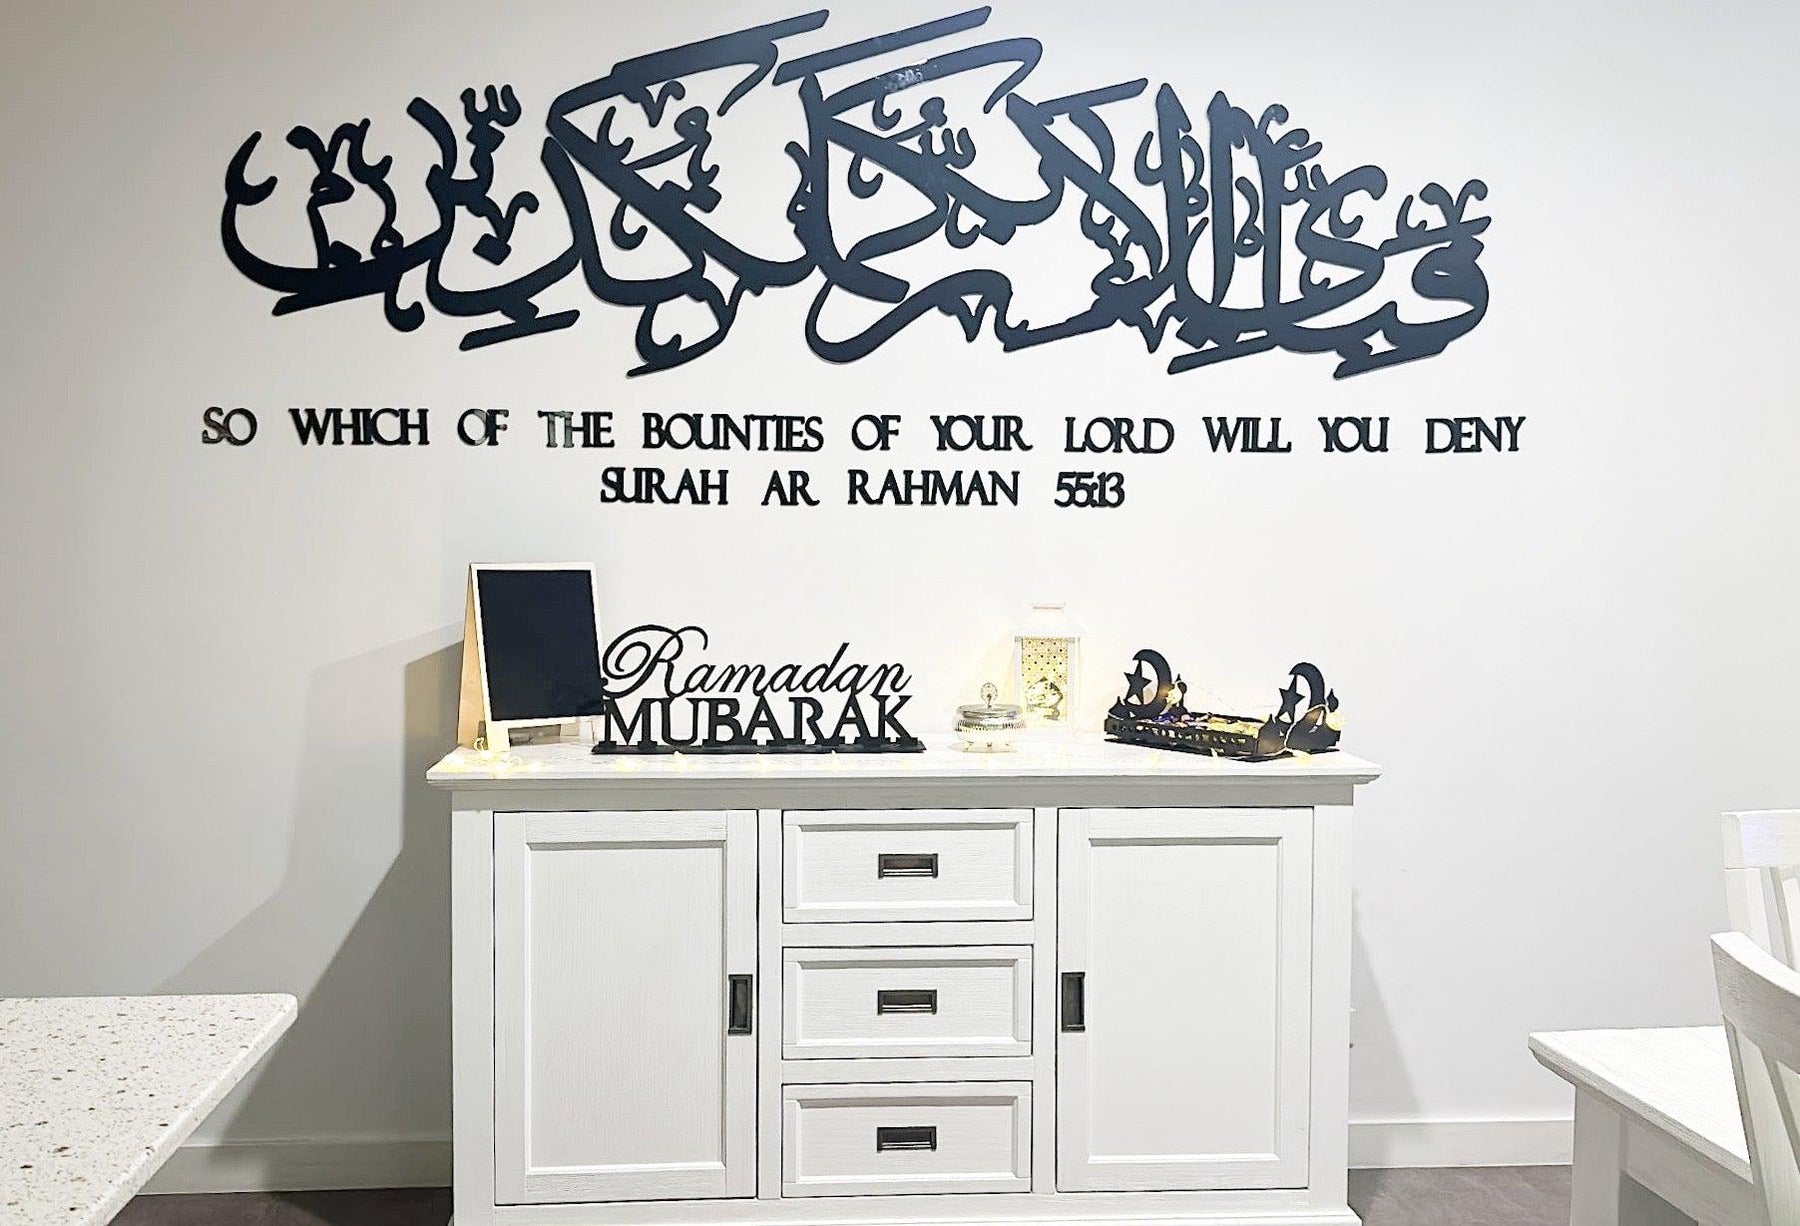 فبأي آلاء ربكما تكذبان
SO WHICH OF THE BOUNTIES OF YOUR LORD WILL YOU DENY
SURAH AR RAHMAN 55:13
Ramadan
MUBARAK